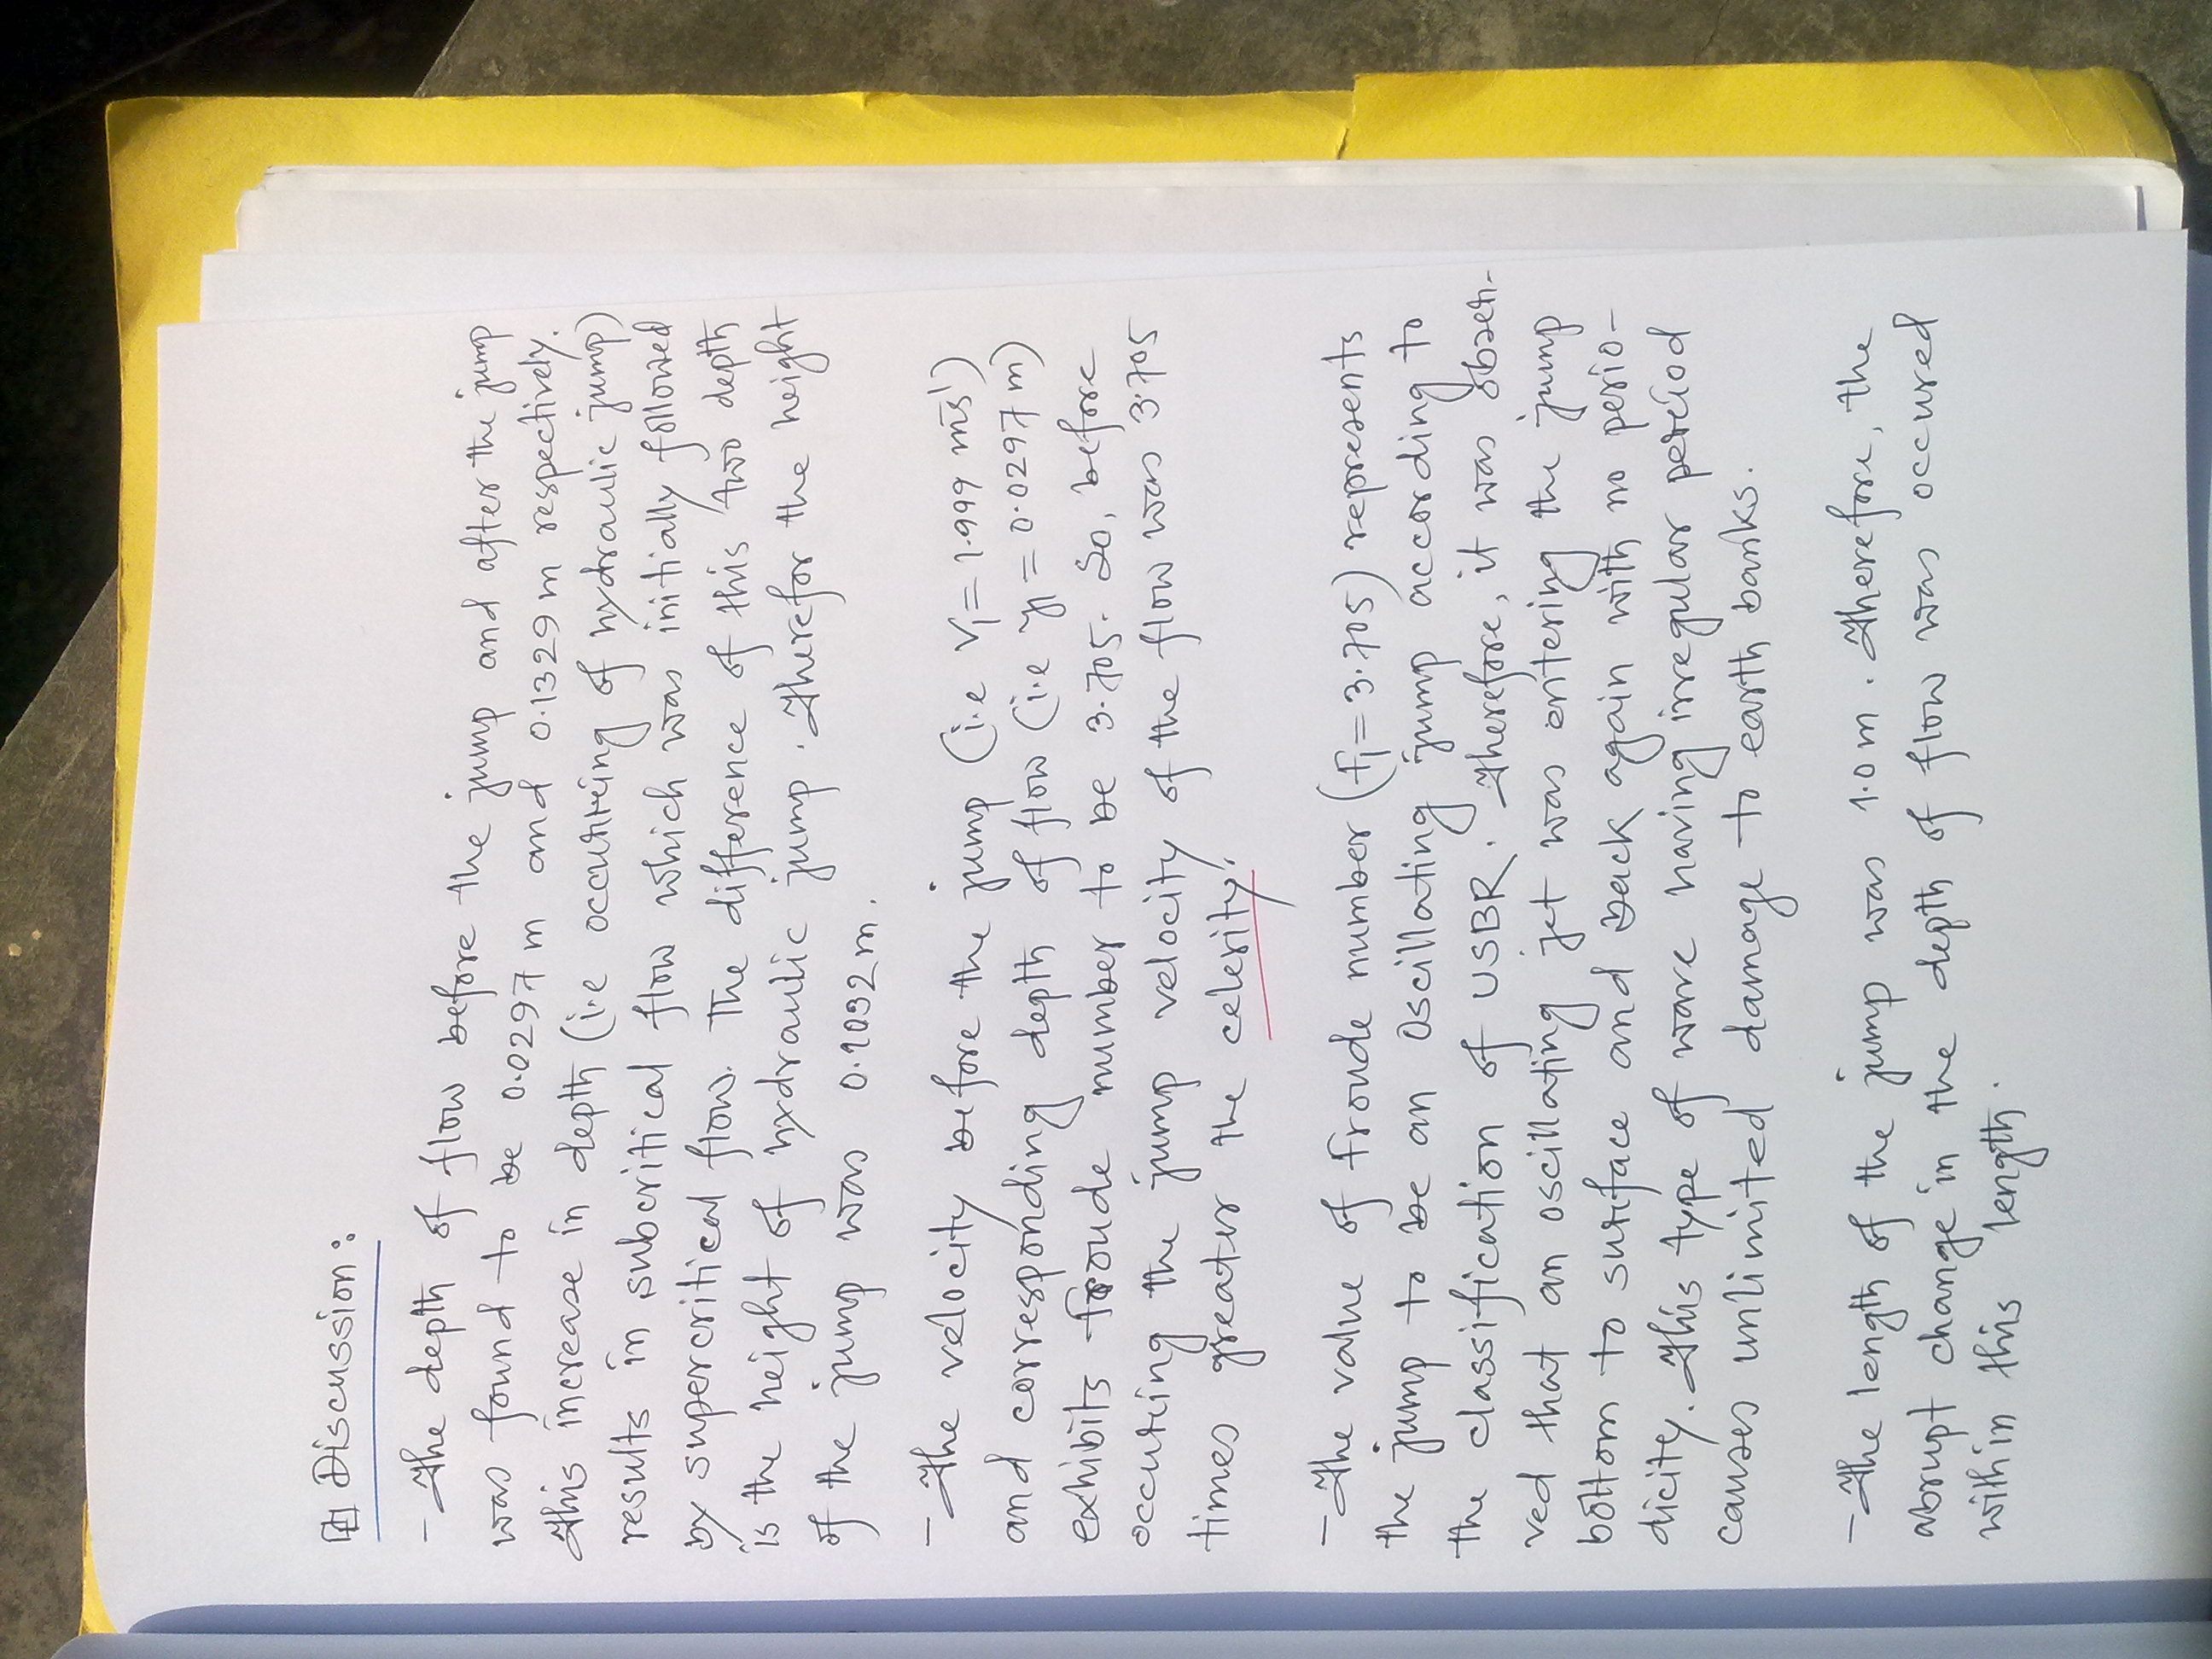 Discussion:
- The depth of flow before the jump and after the jump
was found to be 0.0297 m and 0.1329 m respectively.
This increase in depth (i.e occuring of hydraulic jump)
results in subcritical flow which was initially followed
by supercritical flow. The difference of this two depth
is the height of hydraulic jump. Therefor the height
of the jump was 0.1032 m.
- The velocity before the jump (i.e V₁ = 1.999 ms⁻¹)
and corresponding depth of flow (i.e y₁ = 0.0297 m)
exhibits froude number to be 3.705. So, before
occuring the jump velocity of the flow was 3.705
times greater the celerity.
- The value of froude number (F₁ = 3.705) represents
the jump to be an oscillating jump according to
the classification of USBR. Therefore, it was obser-
ved that an oscillating jet was entering the jump
bottom to surface and back again with no perio-
dicity. This type of wave having irregular period
causes unlimited damage to earth banks.
- The length of the jump was 1.0 m. Therefore, the
abrupt change in the depth of flow was occured
within this length.